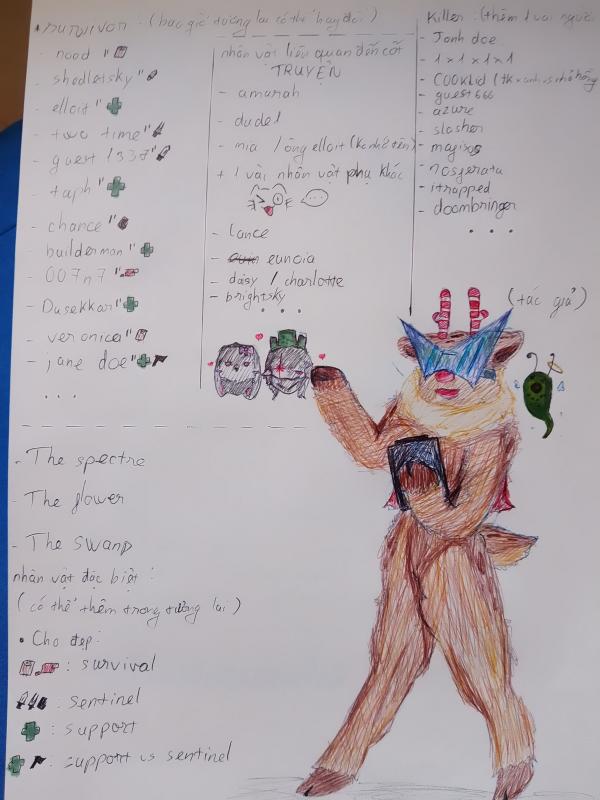 survivor : (bao giờ tương lai có thể thay đổi)
- nood "
- shedletsky "
- elloit "
- two time "
- guest 1337 "
- taph "
- chance "
- builderman "
- 007n7 "
- Dusekkar "
- veronica "
- jane doe "
...
nhân vật liên quan đến cốt
TRUYỆN
- amurah
- dude1
- mia / ông elloit (ko nhớ tên)
+ 1 vài nhân vật phụ khác
- lance
- euncia
- daisy / charlotte
- brightsky
...
Killer : (thêm 1 vài người
- Jonh doe
- 1 x 1 x 1 x 1
- C00lkid
- guest 666
- azure
- slasher
- nosferatu
- itrapped
- doombringer
...
(tác giả)
- The spectre
- The flower
- The swamp
nhân vật đặc biệt :
(có thể thêm trong tương lai)
• Cho đẹp:
: survival
: sentinel
: support
: support vs sentinel